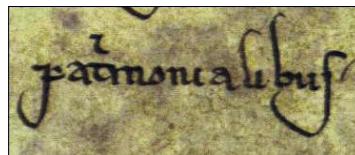 patⁱmonialibuſ